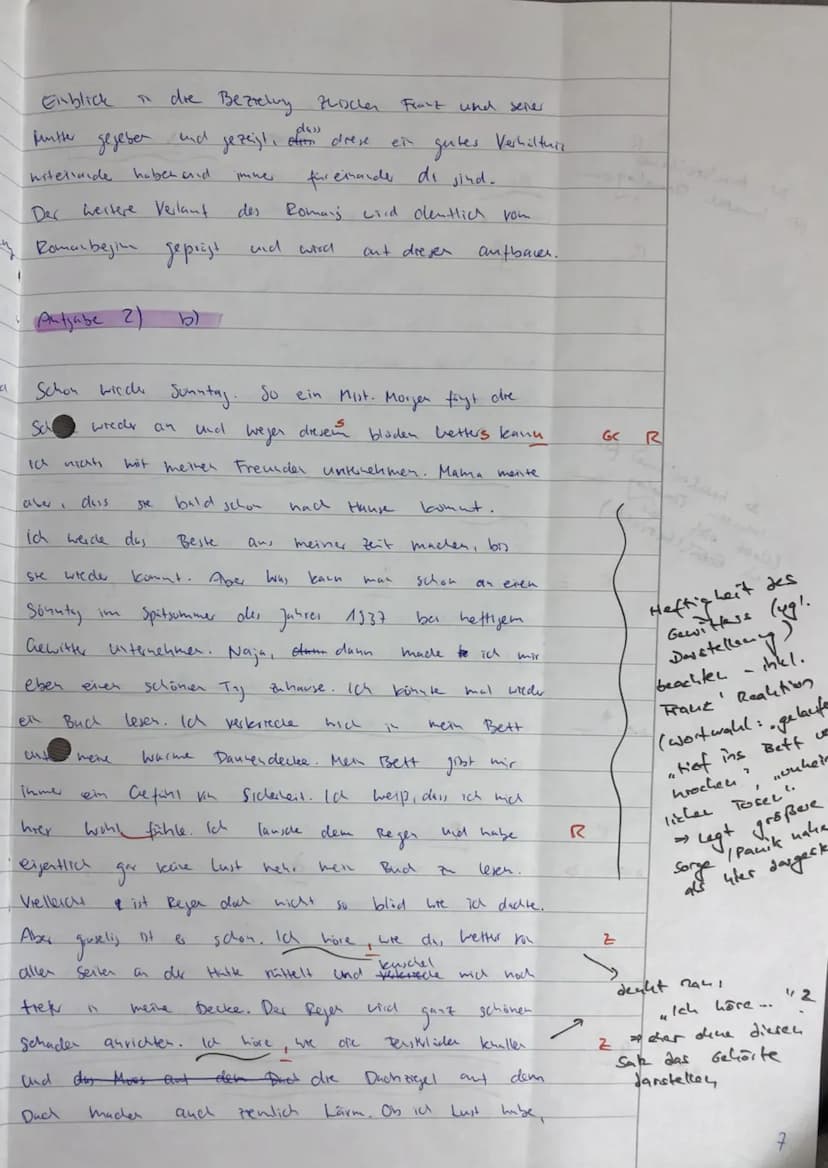 Einblick in die Beziehung zwischen Franz und seiner
Mutter gegeben und gezeigt, dass diese ein gutes Verhältnis
miteinander haben und immer füreinander da sind.
Der weitere Verlauf des Romans wird deutlich vom
Romanbeginn geprägt und wird auf diesen aufbauen.
Aufgabe 2) b)
Schon wieder Sonntag. So ein Mist. Morgen fängt die
Sch wieder an und wegen dieses blöden Wetters kann
GR R
ich nicht mit meinen Freunden unternehmen. Mama meinte
aber, dass sie bald schon nach Hause kommt.
Ich werde das Beste aus meiner Zeit machen, bis
sie wieder kommt. Aber was kann man schon an einen
Sonntag im Spätsommer des Jahres 1937 bei heftigem
Gewitter unternehmen. Naja, dann mache ich mir
eben einen schönen Tag zuhause. Ich könnte mal wieder
ein Buch lesen. Ich verkrieche mich in mein Bett
unter meine warme Daunendecke. Mein Bett gibt mir
immer ein Gefühl von Sicherheit. Ich weiß, dass ich mich
hier wohl fühle. Ich lausche dem Regen und habe
R
eigentlich gar keine Lust mehr mein Buch zu lesen.
Vielleicht ist Regen doch nicht so blöd wie ich dachte.
Aber gruselig ist es schon. Ich höre, wie das Wetter von
Z
allen Seiten an der Hütte rüttelt und kuschel mich noch
tiefer in meine Decke. Der Regen wird ganz schönen
Schaden anrichten. Ich höre, wie die Fensterläden knallen
Z
und die Dachziegel auf dem
Dach machen auch ziemlich Lärm. Ob ich Lust habe,
Heftigkeit des
Gewitters (vgl.
Darstellung)
beachten - inkl.
Franz' Reaktion
(Wortwahl: "gelaufe
"tief ins Bett
krochen", "unheim
lichen Tosen".
⇒ legt größere
Sorge / Panik nahe
als hier dargest
denkt man:
"Ich höre..."?
⇒ eher ohne diesen
Satz das Gehörte
darstellen
7